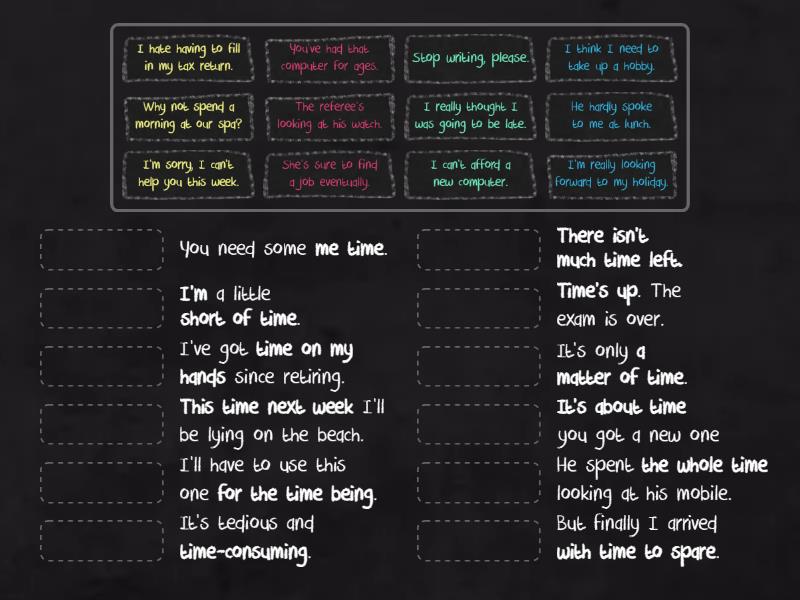 I hate having to fill
in my tax return.
You've had that
computer for ages.
Stop writing, please.
I think I need to
take up a hobby.
Why not spend a
morning at our spa?
The referee's
looking at his watch.
I really thought I
was going to be late.
He hardly spoke
to me at lunch.
I'm sorry, I can't
help you this week.
She's sure to find
a job eventually.
I can't afford a
new computer.
I'm really looking
forward to my holiday.
You need some me time.
I'm a little
short of time.
I've got time on my
hands since retiring.
This time next week I'll
be lying on the beach.
I'll have to use this
one for the time being.
It's tedious and
time-consuming.
There isn't
much time left.
Time's up. The
exam is over.
It's only a
matter of time.
It's about time
you got a new one
He spent the whole time
looking at his mobile.
But finally I arrived
with time to spare.